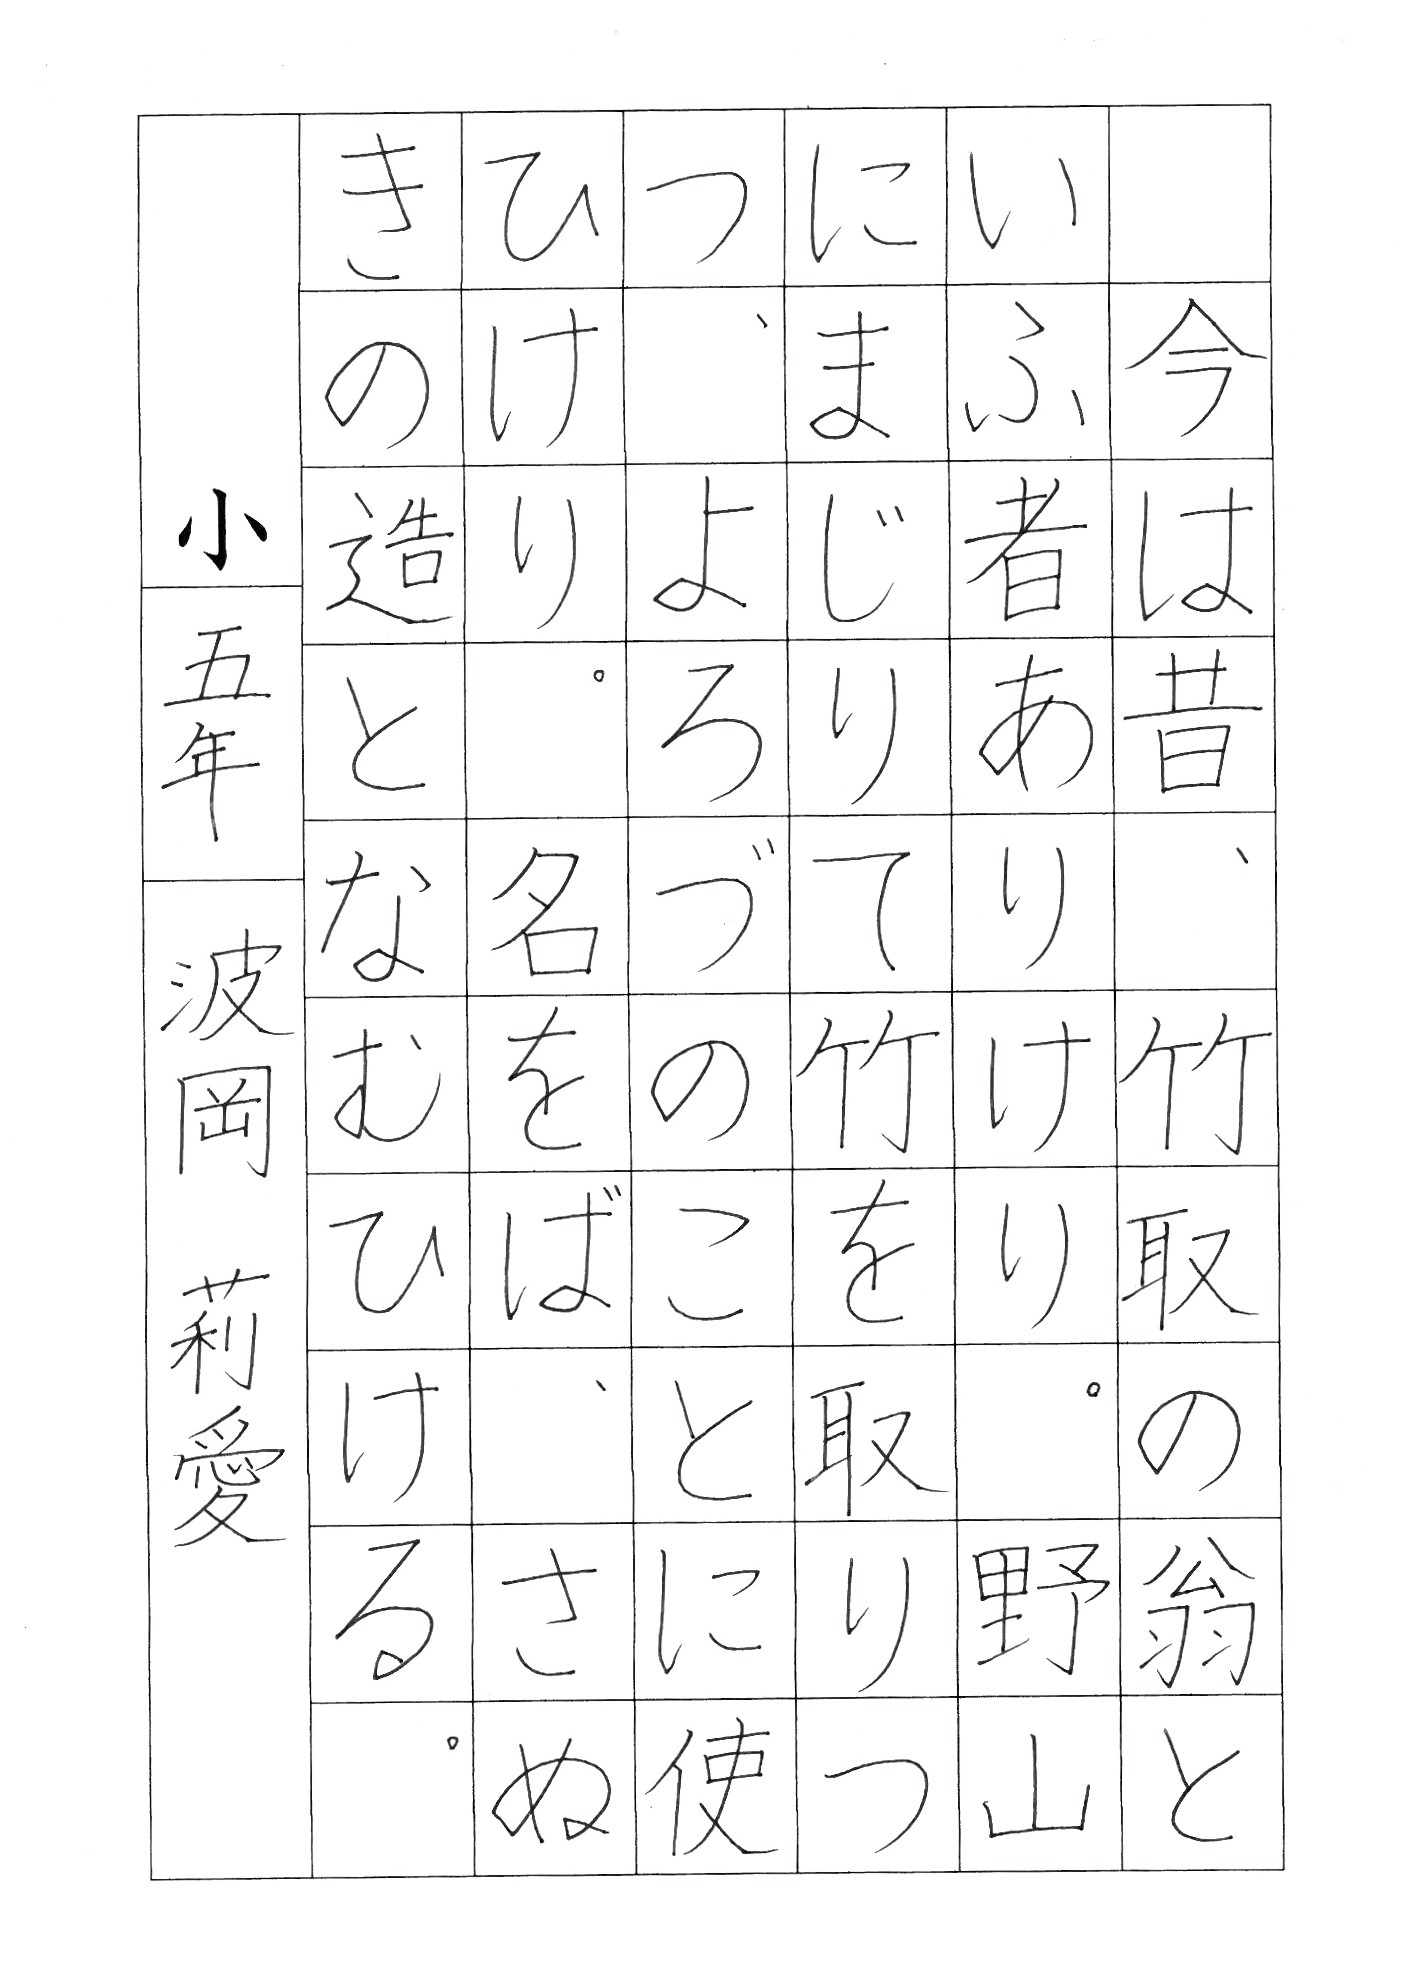 今は昔、竹取の翁と
いふ者ありけり。野山
にまじりて竹を取りつ
つ、よろづのことに使
ひけり。名をば、さぬ
きの造となむひける。
小五年 波岡 莉愛